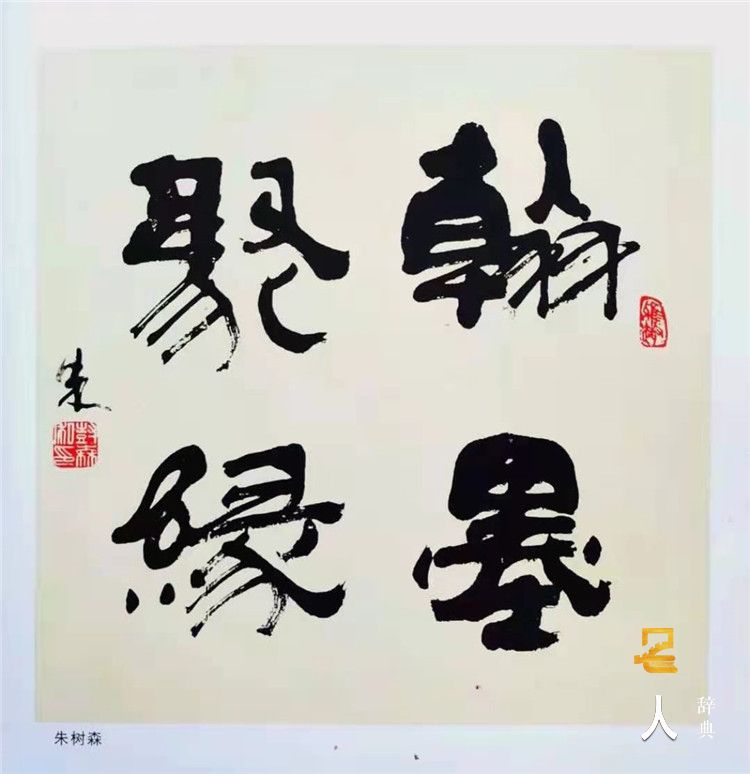 翰墨
聚缘
朱
朱树森
名
人
辞典